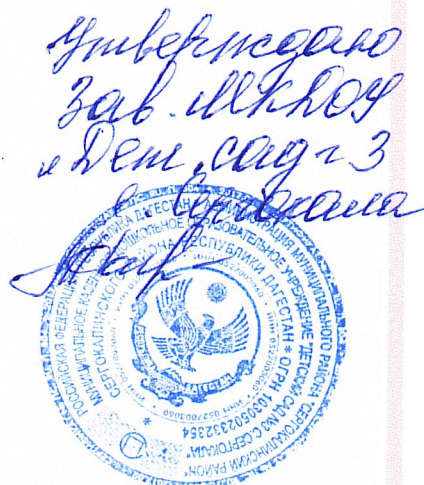 Утверждаю
Зав. МКДОУ
"Дет. сад № 3
с. Сергокала
РОССИЙСКАЯ ФЕДЕРАЦИЯ РЕСПУБЛИКА ДАГЕСТАН АДМИНИСТРАЦИЯ МУНИЦИПАЛЬНОГО РАЙОНА "СЕРГОКАЛИНСКИЙ РАЙОН"
МУНИЦИПАЛЬНОЕ КАЗЕННОЕ ДОШКОЛЬНОЕ ОБРАЗОВАТЕЛЬНОЕ УЧРЕЖДЕНИЕ "ДЕТСКИЙ САД №3 С.СЕРГОКАЛА"
СЕРГОКАЛИНСКОГО РАЙОНА РЕСПУБЛИКИ ДАГЕСТАН * ОГРН 1030502332354
* ИНН 0527003060